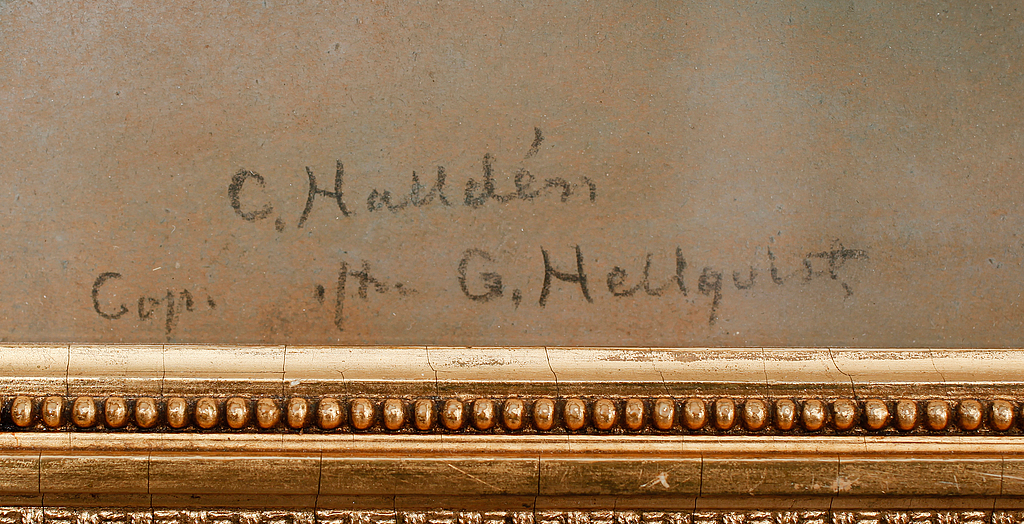 C. Halldén
Cop. ftr. G. Hellquist